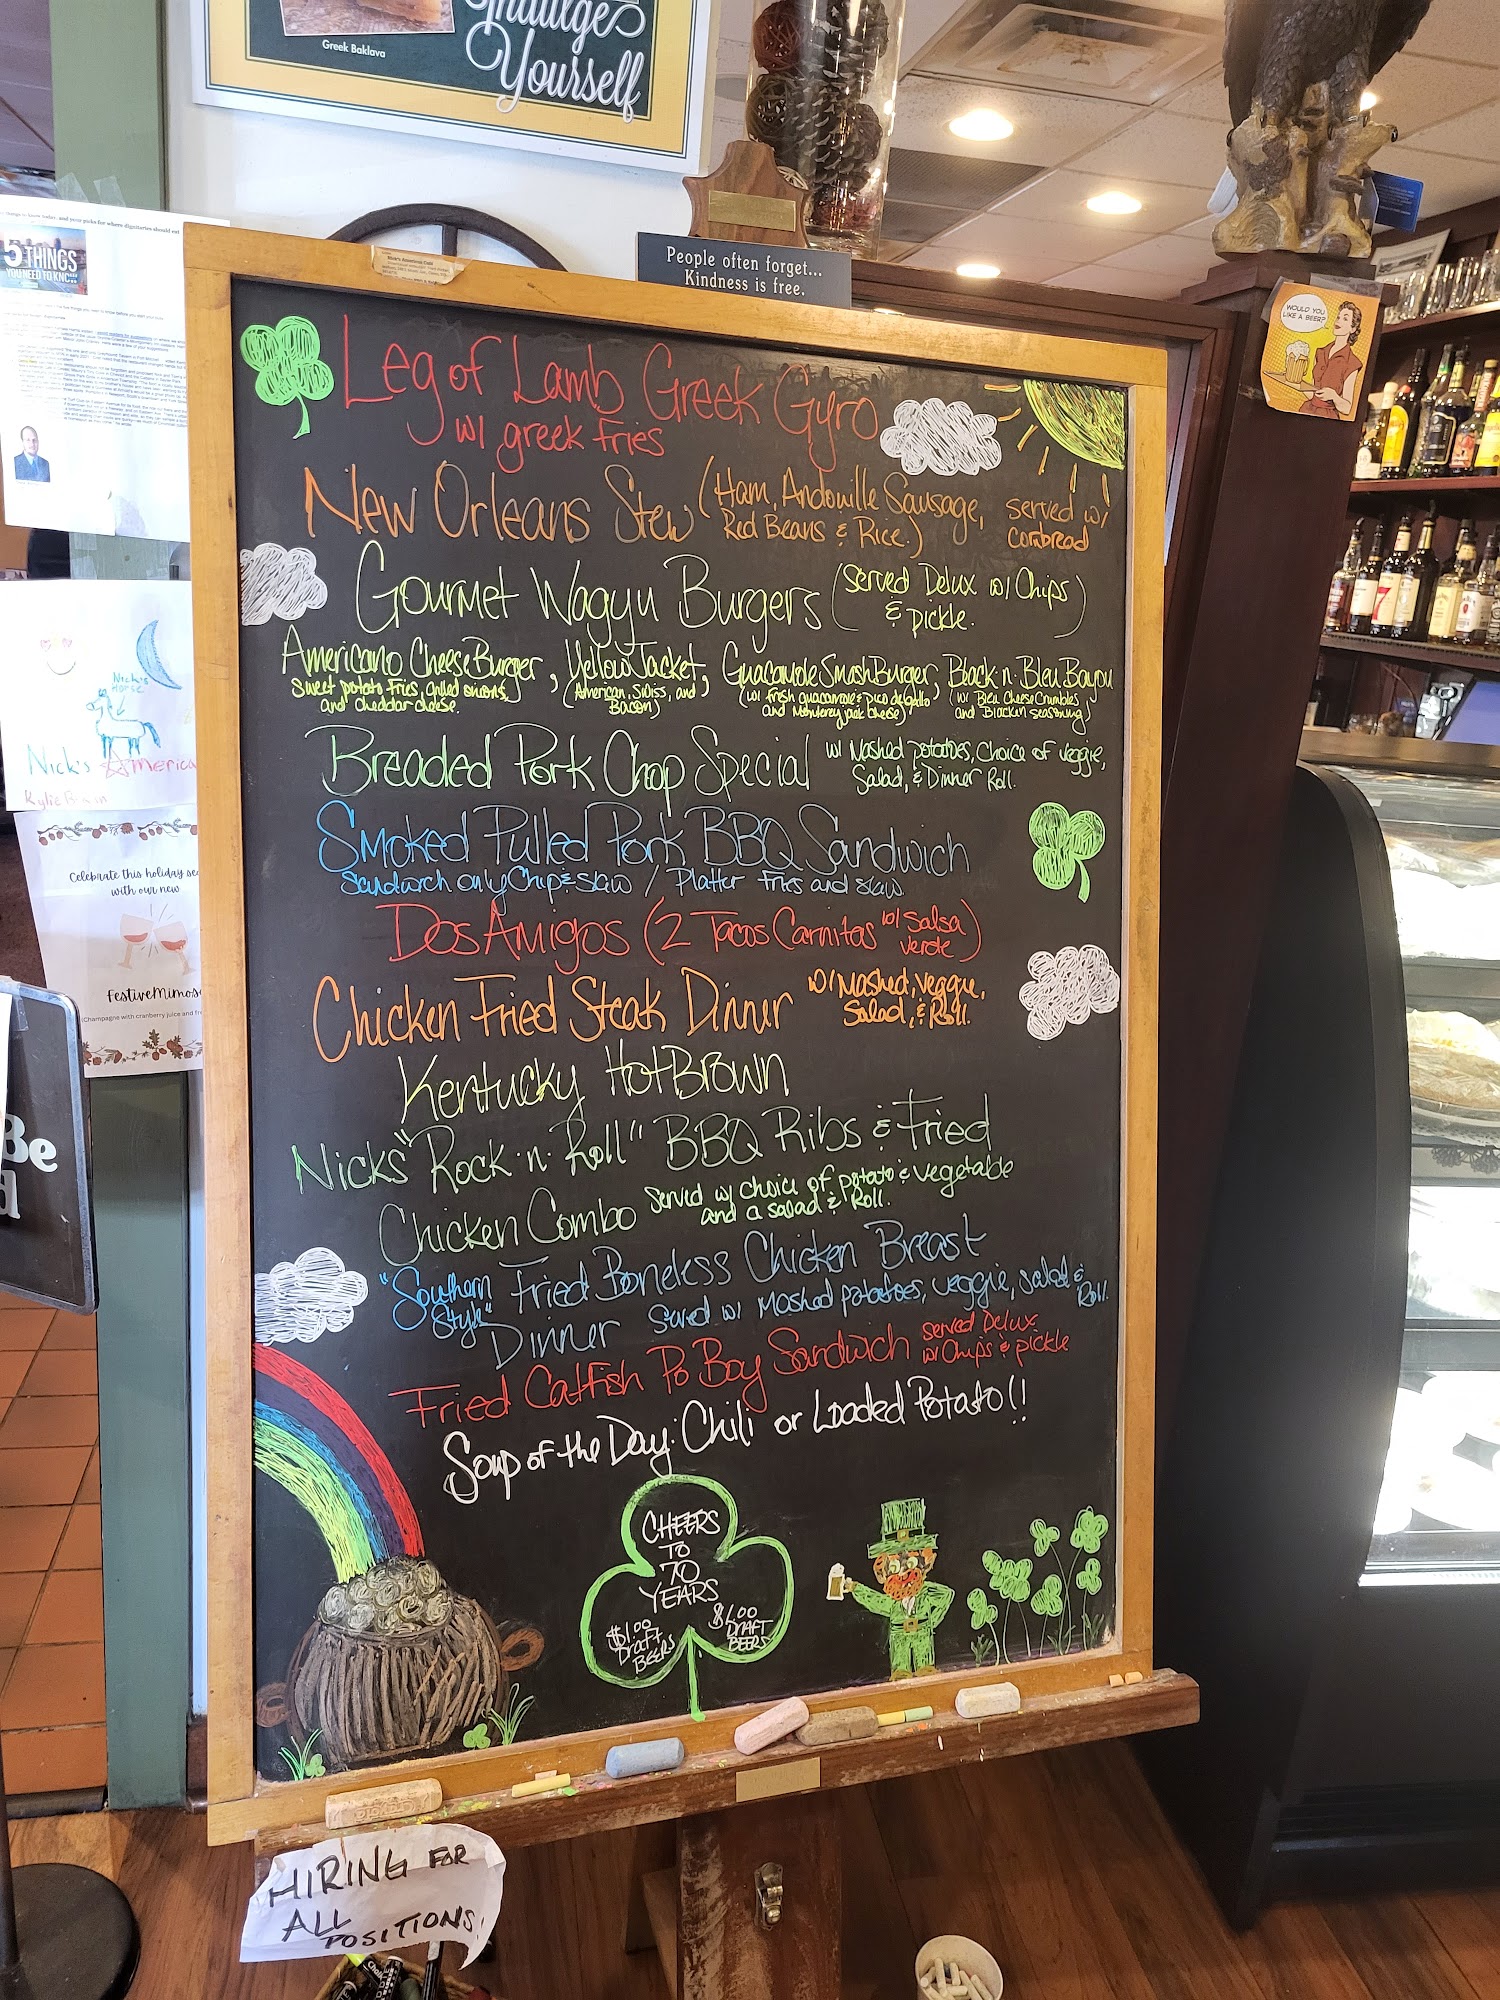 Indulge
Yourself
Greek Baklava
People often forget...
Kindness is free.
5 THINGS
WOULD YOU
LIKE A BEER?
Leg of Lamb Greek Gyro
w/ greek fries
New Orleans Stew (Ham, Andouille Sausage,
Red Beans & Rice.)
served w/
cornbread
Gourmet Wagyu Burgers (Served Delux w/ Chips
& pickle.)
Americano CheeseBurger, YellowJacket, Guacamole SmashBurger, Black n. Bleu Bayou
Sweet potato fries, grilled onions,
and cheddar cheese.
(American, Swiss, and
Bacon)
(w/ fresh guacamole & Pico de gallo
and Monterey jack cheese)
(w/ Bleu Cheese Crumbles
and Blackin seasoning)
Breaded Pork Chop Special w/ Mashed potatoes, choice of veggie,
Salad, & Dinner Roll.
Smoked Pulled Pork BBQ Sandwich
Sandwich only Chip & Slaw / Platter fries and slaw
Dos Amigos (2 Tacos Carnitas w/ Salsa
verde)
Chicken Fried Steak Dinner w/ Mashed, veggie,
Salad, & Roll.
Kentucky HotBrown
Nicks "Rock n. Roll" BBQ Ribs & Fried
Chicken Combo Served w/ choice of potato & vegetable
and a salad & Roll.
"Southern
Style" Fried Boneless Chicken Breast
Dinner Served w/ Mashed potatoes, veggie, salad &
Roll.
Fried Catfish Po Boy Sandwich served Delux
w/ Chips & pickle
Soup of the Day: Chili or Loaded Potato!!
CHEERS
TO
70
YEARS
$1.00
Draft
BEERS
$1.00
DRAFT
BEERS
HIRING FOR
ALL
POSITIONS!
Nick's
HORSE
Nick's America
Celebrate this holiday
with our new
Festive
Champagne with cranberry juice and
Be